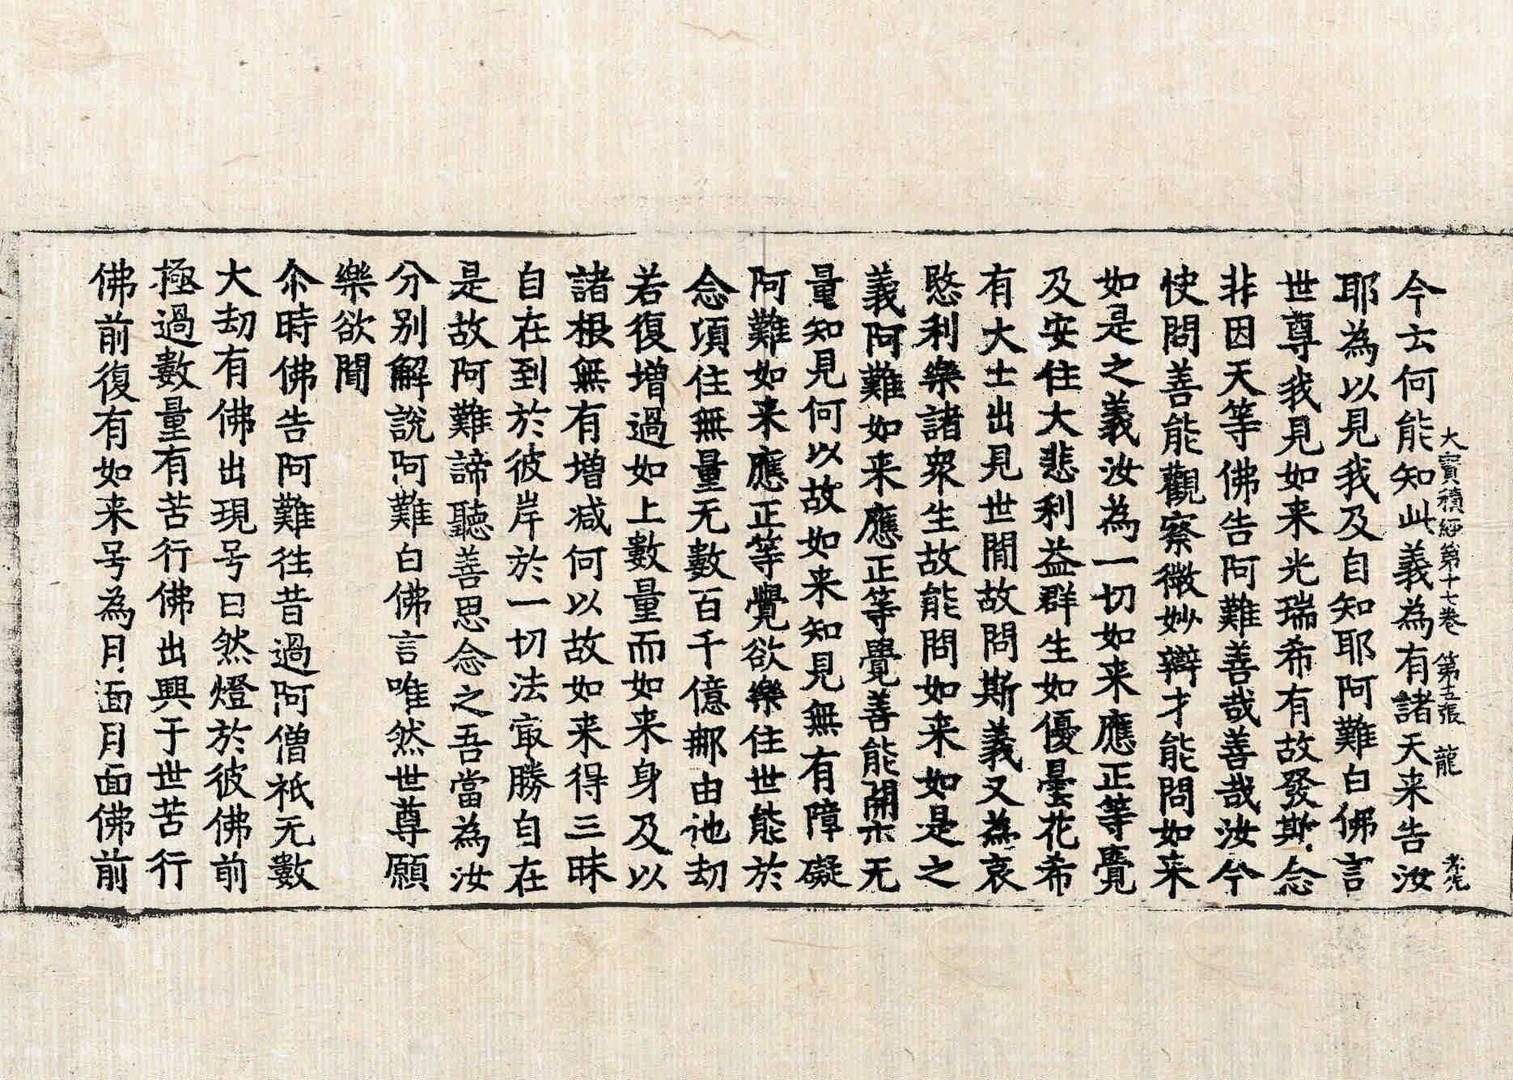 大寶積經第十七卷　第五張　龍
今云何能知此義為有諸天来告汝
耶為以見我及自知耶阿難白佛言
世尊我見如来光瑞希有故發斯念
非因天等佛告阿難善哉善哉汝今
快問善能觀察微妙辯才能問如来
如是之義汝為一切如来應正等覺
及安住大悲利益群生如優曇花希
有大士出見世間故問斯義又為哀
愍利樂諸衆生故能問如来如是之
義阿難如来應正等覺善能開示无
量知見何以故如来知見無有障礙
阿難如来應正等覺欲樂住世能於
念項住無量无數百千億那由他劫
若復增過如上數量而如来身及以
諸根無有增减何以故如来得三昧
自在到於彼岸於一切法㝡勝自在
是故阿難諦聽善思念之吾當為汝
分別解說阿難白佛言唯然世尊願
樂欲聞
尒時佛告阿難往昔過阿僧衹无數
大劫有佛出現号曰然燈於彼佛前
極過數量有苦行佛出興于世苦行
佛前復有如来号為月面月面佛前